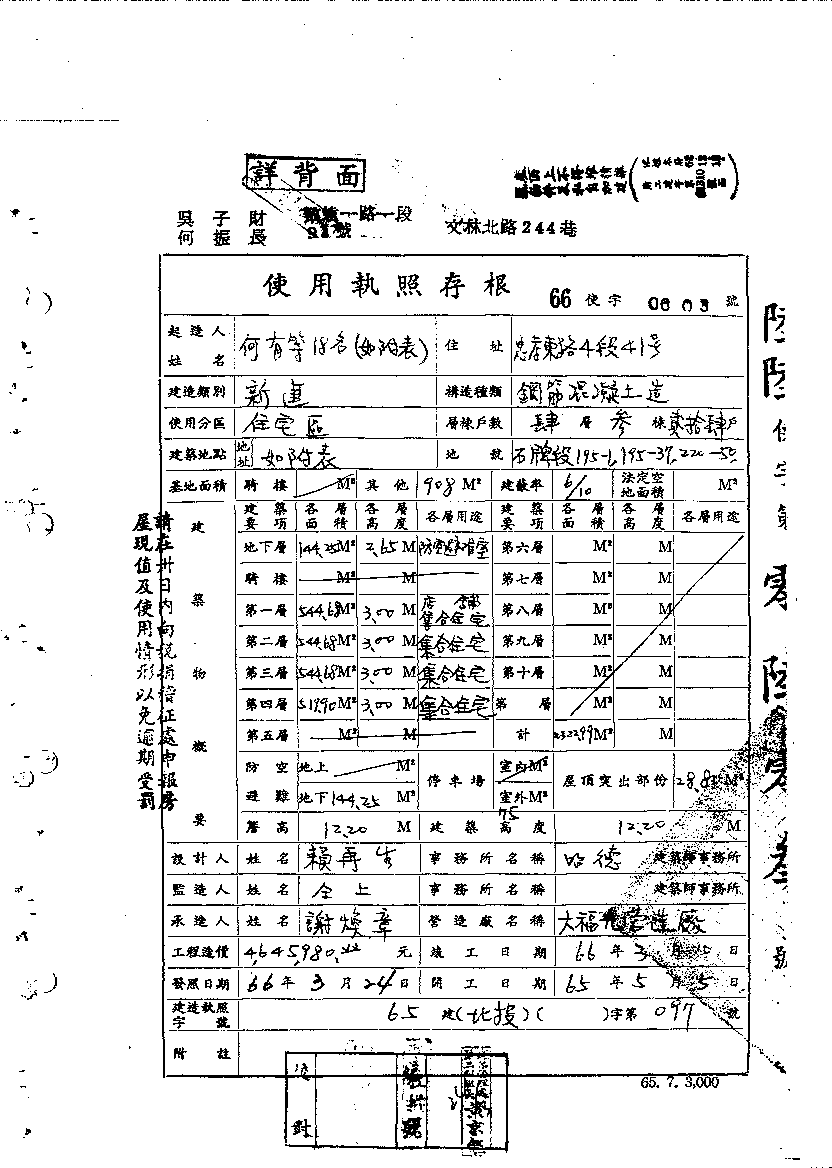 詳背面
吳子財
何振長
路一段
號
文林北路244巷
使用執照存根 66 使字 0603 號
起造人姓名 何有等18名(如附表) 住址 忠孝東路4段41號
建造類別 新建 構造種類 鋼筋混凝土造
使用分區 住宅區 層棟戶數 肆層參棟貳拾肆戶
建築地點 地址 如附表 地號 石牌段195-1,195-37,220-50
基地面積 騎樓 M² 其他 908 M² 建蔽率 6/10 法定空地面積 M²
建築物概要
建築要項 各層面積 各層高度 各層用途 建築要項 各層面積 各層高度 各層用途
地下層 144.25M² 2.65M 防空避難室 第六層 M² M
騎樓 M² M 第七層 M² M
第一層 544.68M² 3.00M 店舖 集合住宅 第八層 M² M
第二層 544.68M² 3.00M 集合住宅 第九層 M² M
第三層 544.68M² 3.00M 集合住宅 第十層 M² M
第四層 519.90M² 3.00M 集合住宅 第 層 M² M
第五層 M² M 計 M² M
防空避難 地上 M² 停車場 室內M² 屋頂突出部份 M²
地下144.25 M² 室外M²
簷高 12.20 M 建築高度 12.20 M
設計人 姓名 賴再生 事務所名稱 昭德 建築師事務所
監造人 姓名 仝上 事務所名稱 建築師事務所
承造人 姓名 謝煥章 營造廠名稱 營造廠
工程造價 4,645,980 元 竣工日期 66年3月 日
發照日期 66年3月24日 開工日期 65年5月5日
建造執照字號 65 建(北投)( )字第 097 號
附註
請在卅日內向稅捐稽征處申報房
屋現值及使用情形以免逾期受罰
使字第
號
校對
65. 7. 3,000